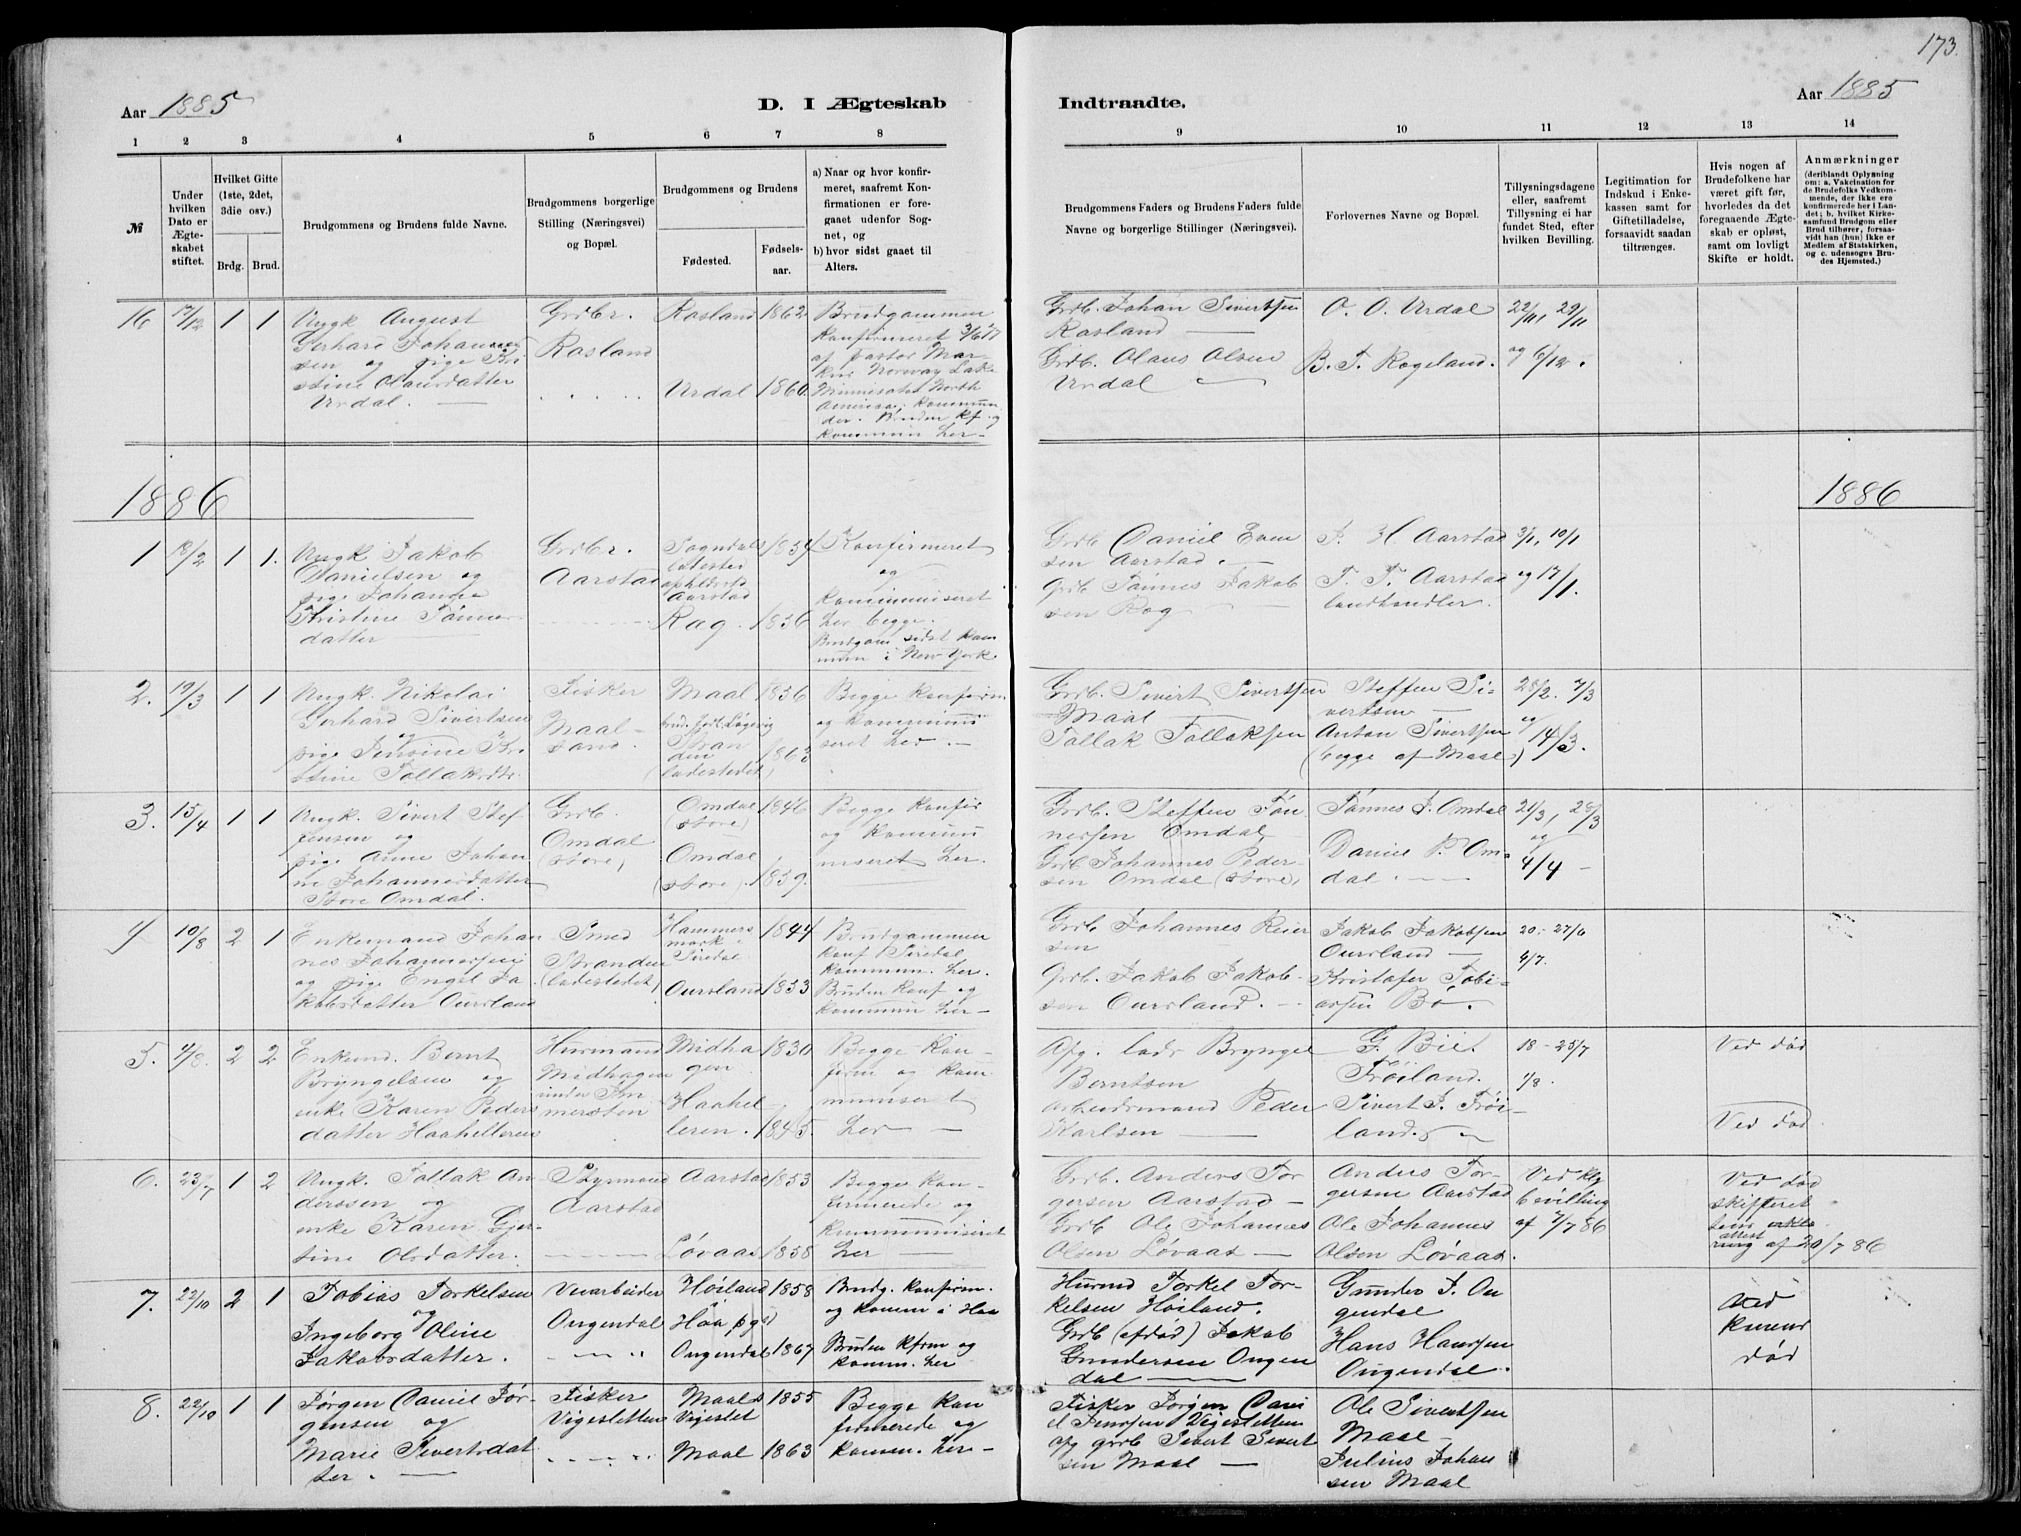 173.
Aar 1885
D. I Ægteskab
Indtraadte.
Aar 1885
1 2 3 4 5 6 7 8
9 10 11 12 13 14
№
Under
hvilken
Dato er
Ægte-
skabet
stiftet.
Hvilket Gifte
(1ste, 2det,
3die osv.)
Brdg. Brud.
Brudgommens og Brudens fulde Navne.
Brudgommens borgerlige
Stilling (Næringsvei)
og Bopæl.
Brudgommens og Brudens
Fødested.
Fødsels-
aar.
a) Naar og hvor konfir-
meret, saafremt Kon-
firmationen er fore-
gaaet udenfor Sog-
net, og
b) hvor sidst gaaet til
Alters.
Brudgommens Faders og Brudens Faders fulde
Navne og borgerlige Stillinger (Næringsvei).
Forlovernes Navne og Bopæl.
Tillysningsdagene
eller, saafremt
Tillysning ei har
fundet Sted, efter
hvilken Bevilling.
Legitimation for
Indskud i Enke-
kassen samt for
Giftetilladelse,
forsaavidt saadan
tiltrænges.
Hvis nogen af
Brudefolkene har
været gift før,
hvorledes da det
foregaaende Ægte-
skab er opløst,
samt om lovligt
Skifte er holdt.
Anmærkninger
(deriblandt Oplysning
om: a. Vakcination for
de Brudefolks Vedkom-
mende, der ikke ere
konfirmerede her i Lan-
det; b. hvilket Kirke-
samfund Brudgom eller
Brud tilhører, forsaa-
vidt han (hun) ikke er
Medlem af Statskirken,
og c. udensogns Bru-
des Hjemsted.)
16 17/12 1 1
Ungk. August
Gerhard Johannes
sen og pige Kri
stine Olausdatter
Urdal.
Grdbr.
Rosland
Rosland 1862
Urdal 1860.
Brudgommen
konfirmeret 3/6 77
af pastor Mar-
kus Norway Lake
Minnesota North
America; kommun
der. Bruden kf. og
kommun her-
Grdb. Johan Sivertsen
Rosland
Grdb. Olaus Olsen
Urdal
O. O. Urdal
B. T. Rogeland.
22/11, 29/11
og 6/12.
1886
1886
1 18/2 1 1.
Ungk. Jakob
Danielsen og
pige Johanne
Kristine Tønnes
datter
Grdbr.
Aarstad
Sogndals
ladested
opholdssted
Aarstad
Rag.
1854
1856
Konfirmeret
og
kommuniseret
her begge.
Brudgom sidst kom
mun i New York
Grdb. Daniel Even
sen Aarstad.
Grdb Tønnes Jakob
sen Rag
J. H Aarstad
T. T. Aarstad
landhandler.
3/1, 10/1
og 17/1.
2. 19/3 1 1
Ungk. Nikolai
Gerhard Sivertsen
og
pige Jensine Kri
stine Tollaksdtr.
Fisker
Maal
Sand.
Maal 1856
Stran
den 1862
(ladestedet)
Begge konfirm
og kommuni
seret her.
Grdb. Sivert Sivertsen
Maal
Tollak Tollaksen
Steffen Si-
vertsen
Anton Sivertsen
(begge af Maal)
28/2. 7/3
og
14/3.
3. 15/4 1 1
Ungk. Sivert Stef
fensen og
pige Anne Johan
ne Johannesdatter
Store Omdal.
Grdb.
Omdal
(store)
Omdal 1846
(store)
Omdal
(store). 1859.
Begge konfir
og kommuni
niseret her.
Grdb. Steffen Tøn
nessen Omdal
Grdb. Johannes Peder-
sen Omdal (store)
Tønnes J. Omdal
Daniel P. Om-
dal.
21/3, 28/3
og
4/4 -
4 10/8 2 1
Enkemand Johan
nes Johannessen
og pige Engel Ja
kobsdatter Oursland
Smed
Stranden
(ladestedet)
Hammers
mark i
Siredal 1844
Oursland 1853
Brudgommen
konf i Siredal
kommun. her.
Bruden konf og
kommun her-
Grdb Johannes Reier
sen
Grdb. Jakob Jakob-
sen Oursland.
Jakob Jakobsen
Oursland
Kristofer Tobi-
assen Bø.
20.-27/6
4/7.
5. 4/8. 2 2
Enkemd. Bernt
Bryngelsen og
enke Karen Peders
datter Haahelleren
Husmand
Midhagen
under Im
mersten
Midha 1830
gen
Haahel-
leren. 1845.
Begge kon-
firm og kom
muniseret
her
Afg. lods Bryngel
Berntsen
arbeidsmand Peder
Karlsen
G. Bie.
Frøiland.
Sivert J. Frøi-
land.
18-25/7
1/8.
Ved død
Ved død
6. 23/7 1 2
Ungk. Tollak An
derssen og
enke Karen Gjer-
tine Olsdatter.
Styrmand
Aarstad
Aarstad 1853
Løvaas 1858
Begge kon-
firmerede og
kommuniseret
her
Grdb. Anders Tor-
gersen Aarstad
Grdb Ole Johannes
Olsen Løvaas
Anders Tor-
gersen Aarstad
Ole Johannes
Olsen Løvaas.
Ved Klg
bevilling
af 7/7 86
Ved død
skifteret
attest
af 20/7 86
7. 22/10 2 1
Tobias Torkelsen
og
Ingeborg Oline
Jakobsdatter.
Veiarbeider
Ougendal
Høiland 1858
Haa pgd
Ougendal 1867
Brudg. konfirm.
og komm i Haa
Bruden kfrm og
komm. her
Husmd Torkel Tor-
kelsen Høiland.
Grdb (afdød) Jakob
Gundersen Ougen
dal
Gunder J. Ou
gendal
Hans Hansen
Ougendal.
Ved
konens
død
8. 22/10 1 1
Jørgen Daniel Jør-
gensen og
Marie Sivertsdat
ter.
Fisker
Vigestetten
Maals 1855
Vigestet
Maal 1863
Begge kon
firmerede og
komm. her-
Fisker Jørgen Dani
el Jenssen Vigestetten
afg grdb Sivert Sivert
sen Maal
Ole Sivertsen
Maal
Julius Johan
sen Maal